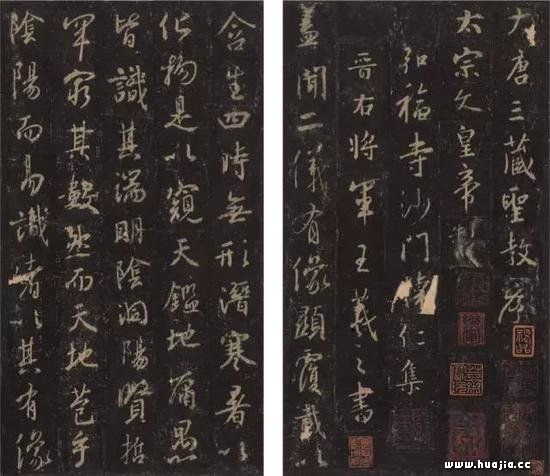 大唐三藏聖教序
太宗文皇帝製
弘福寺沙門懷仁集
晉右將軍王羲之書
蓋聞二儀有像顯覆載以
含生四時無形潛寒暑以
化物是以窺天鑑地庸愚
皆識其端明陰洞陽賢哲
罕窮其數然而天地苞乎
陰陽而易識者以其有像
www.huajia.cc